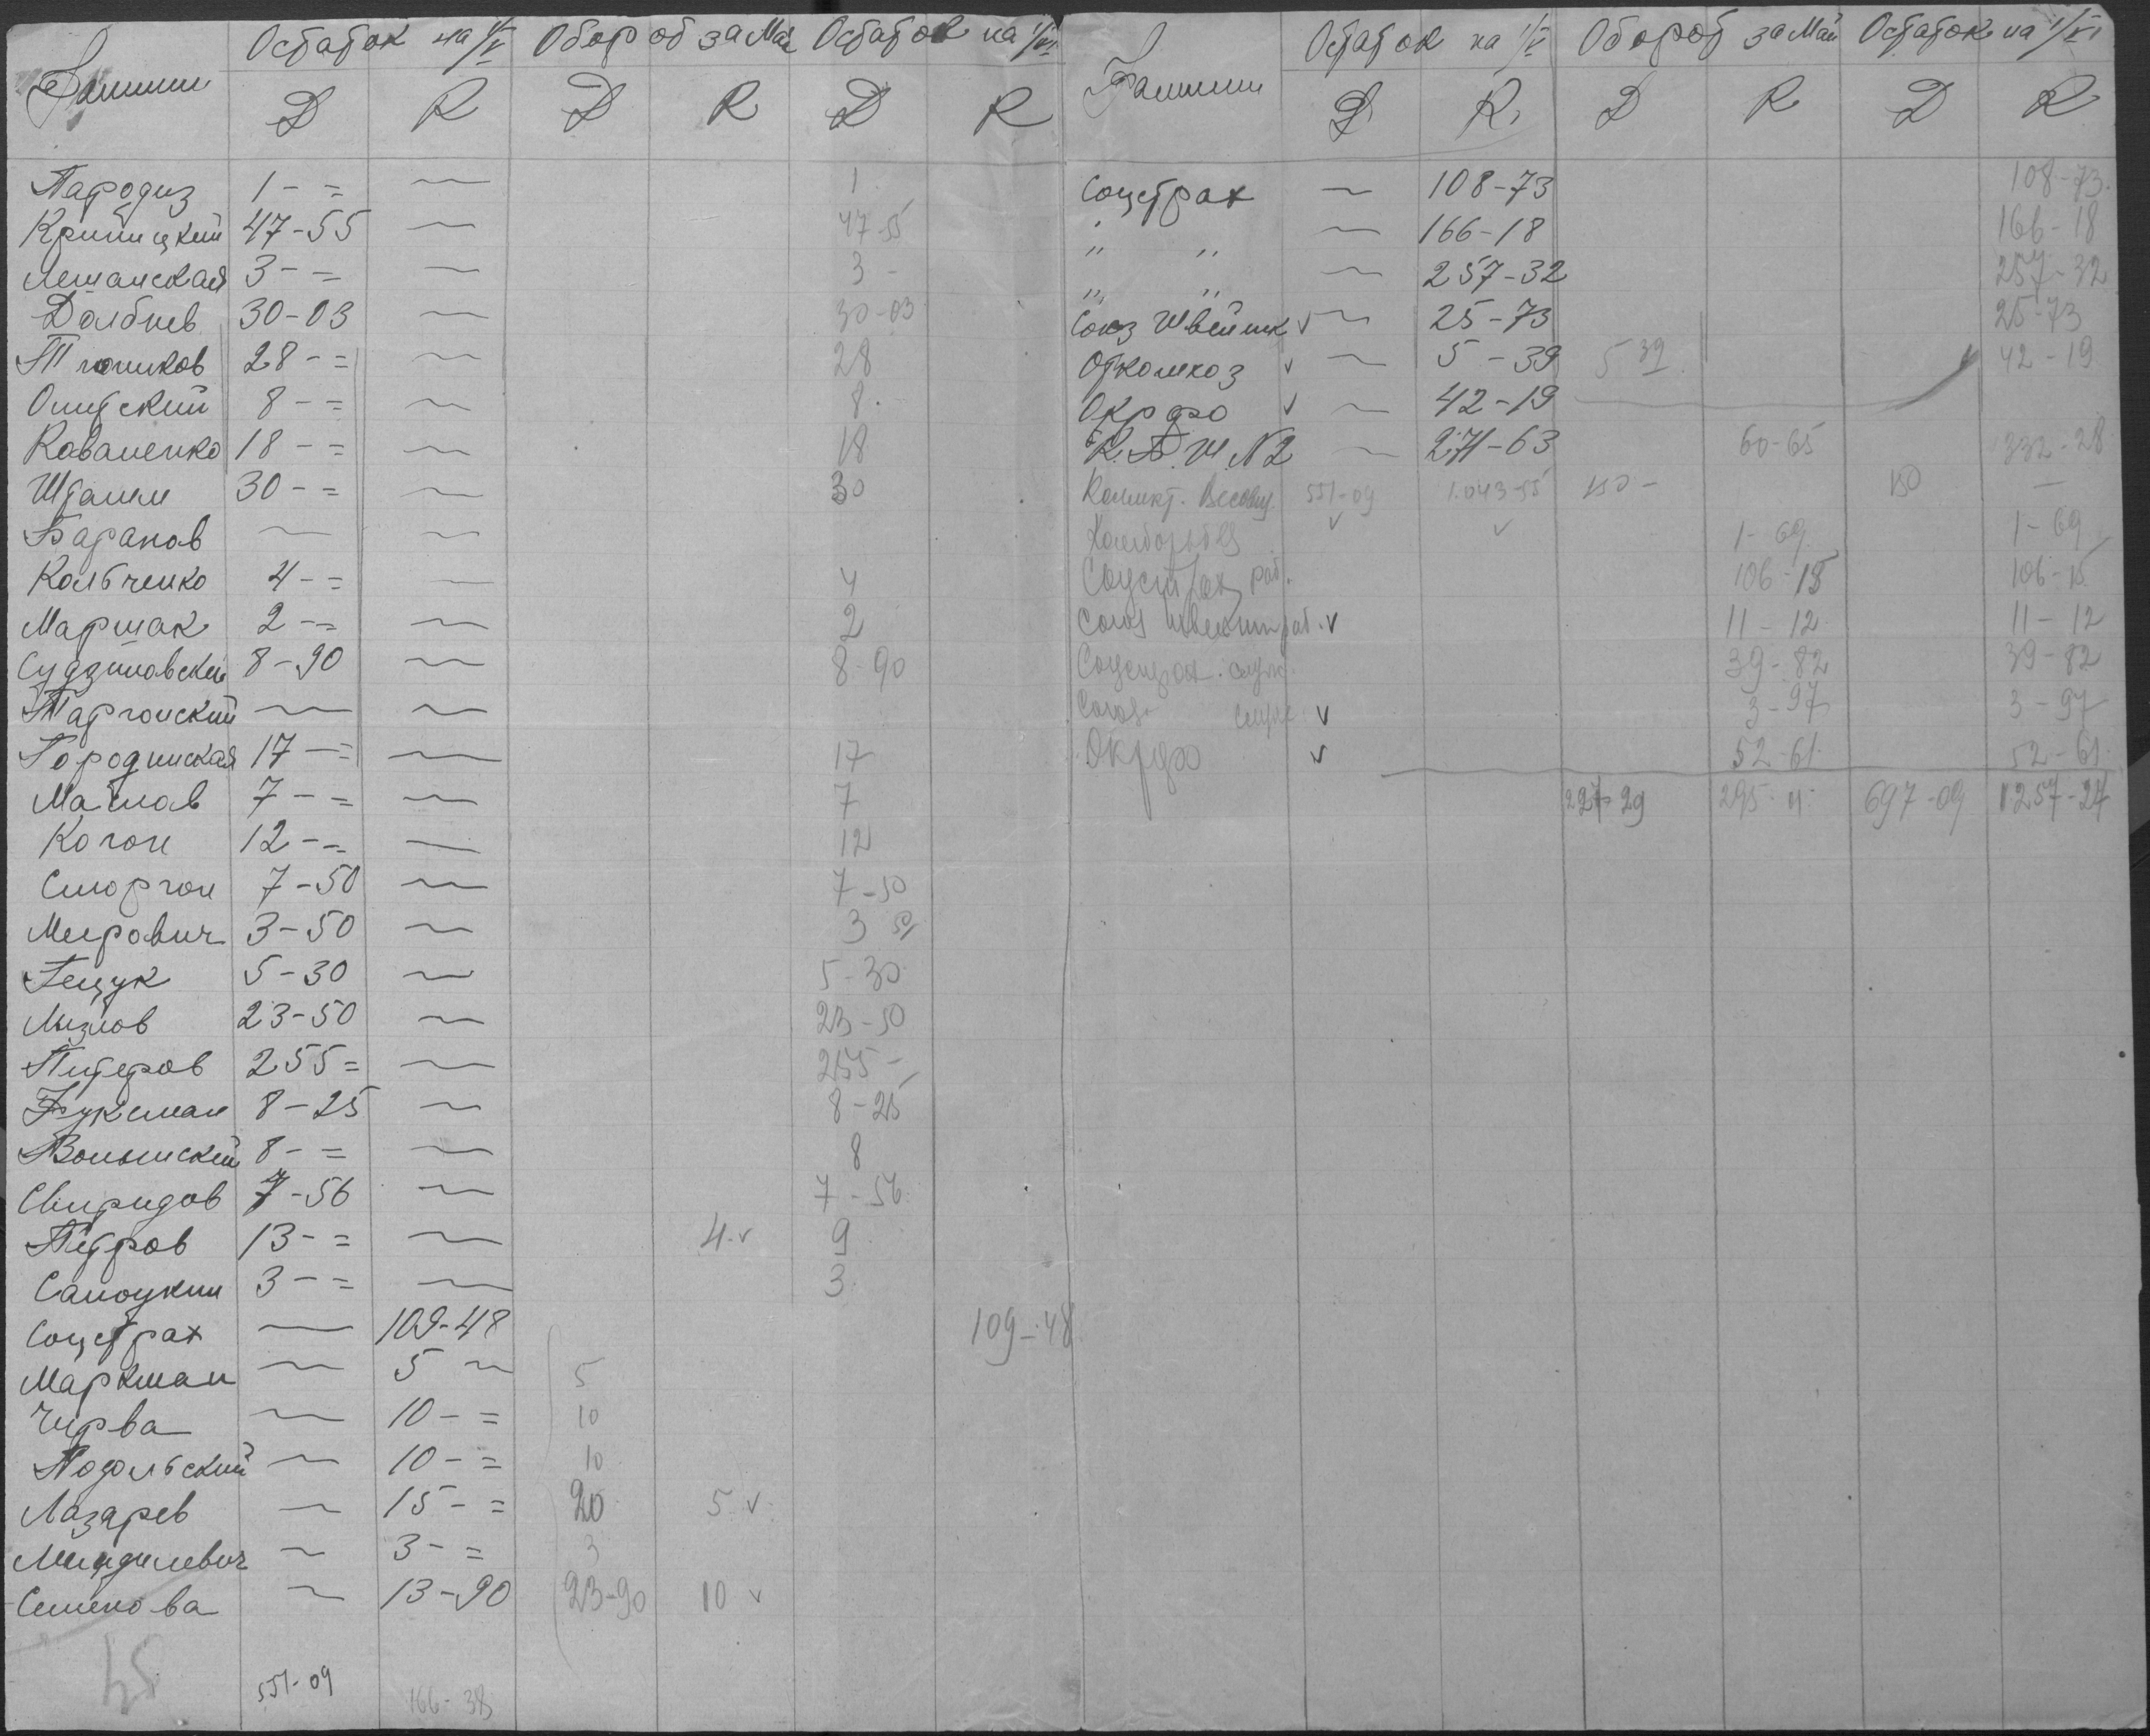 Фамилии Остаток на 1/V Оборот за Май Остаток на 1/VI
D R D R D R
Пародиз 1 - = — 1
Криницкий 47-55 — 47-55
Лешанская 3 - = — 3 -
Долбнев 30-03 — 30-03
28 - = — 28
8 - = — 8
Коваленко 18 - = — 18
Штамм 30 - = — 30
Баранов — —
Кольченко 4 - = — 4
Маршак 2 - = — 2
8-90 — 8-90
Таргонский — —
Городинская 17 - = — 17
Маслов 7 - = — 7
Коган 12 - = — 12
Сморгон 7-50 — 7-50
Мирович 3-50 — 3 50
Гещук 5-30 — 5-30
23-50 — 23-50
Питеров 255 = — 255 -
Фуксман 8-25 — 8-25
Волынский 8 - = — 8
Свиридов 7-56 — 7-56
Петров 13 - = — 4 v 9
3 - = — 3
Соцстрах — 109-48 109-48
Маркман — 5 — 5
Чирва — 10 - = 10
Подольский — 10 - = 10
Лазарев — 15 - = 20 5 v
Миндилевич — 3 - = 3
Семенова — 13-90 23-90 10 v
45
551-09 166-38
Фамилии Остаток на 1/V Оборот за Май Остаток на 1/VI
D R D R D R
Соцстрах — 108-73 108-73
" " — 166-18 166-18
" " — 257-32 257-32
Союз Швейник v — 25-73 25-73
v — 5-39 5 39 42-19
Окрфо v — 42-19
К.П.Ш. N2 — 271-63 60-65 332-28
551-09 1.043-55 150 - 150 —
1-69 1-69
Соцстрах раб. 106-15 106-15
Союз швейник раб. v 11-12 11-12
Соцстрах служ. 39-82 39-82
Союз служ v 3-97 3-97
Окрфо v 52-61 52-61
227-29 295-11 697-09 1257-27